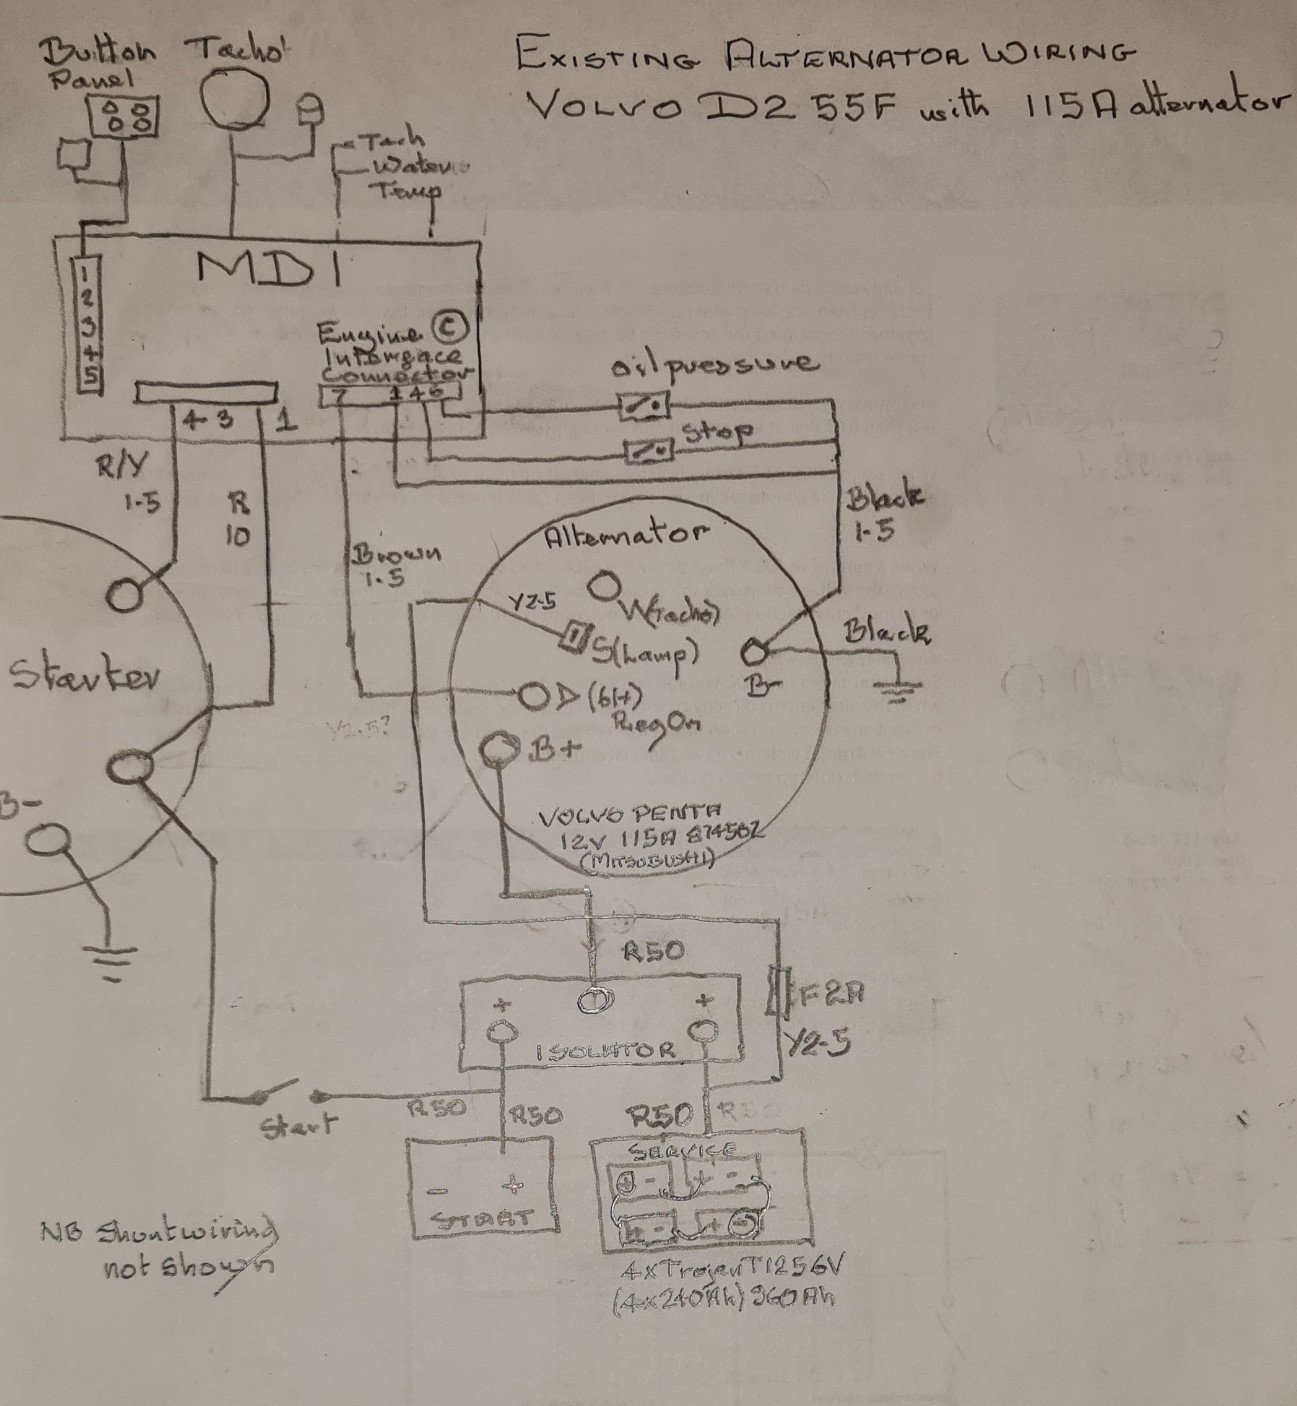 Button
Panel
Tacho'
EXISTING ALTERNATOR WIRING
VOLVO D2 55F with 115A alternator
Tach
Water
Temp
MDI
1
2
3
4
5
Engine C
Interface
Connector
7 1 4 6
4 3 1
oil pressure
Stop
R/Y
1.5
R
10
Brown
1.5
Black
1.5
Alternator
W(Tacho)
Y2.5
S(Lamp)
D (61+)
Reg On
B+
B-
Black
Starter
Y2.5?
B-
VOLVO PENTA
12V 115A 874562
(MITSUBUSHI)
R50
F2A
Y2.5
+ +
ISOLATOR
Start
R50
R50
R50
R50
- +
START
SERVICE
+ - + -
+ - + -
4xTrojanT1256V
(4x240Ah) 960Ah
NB Shunt wiring
not shown